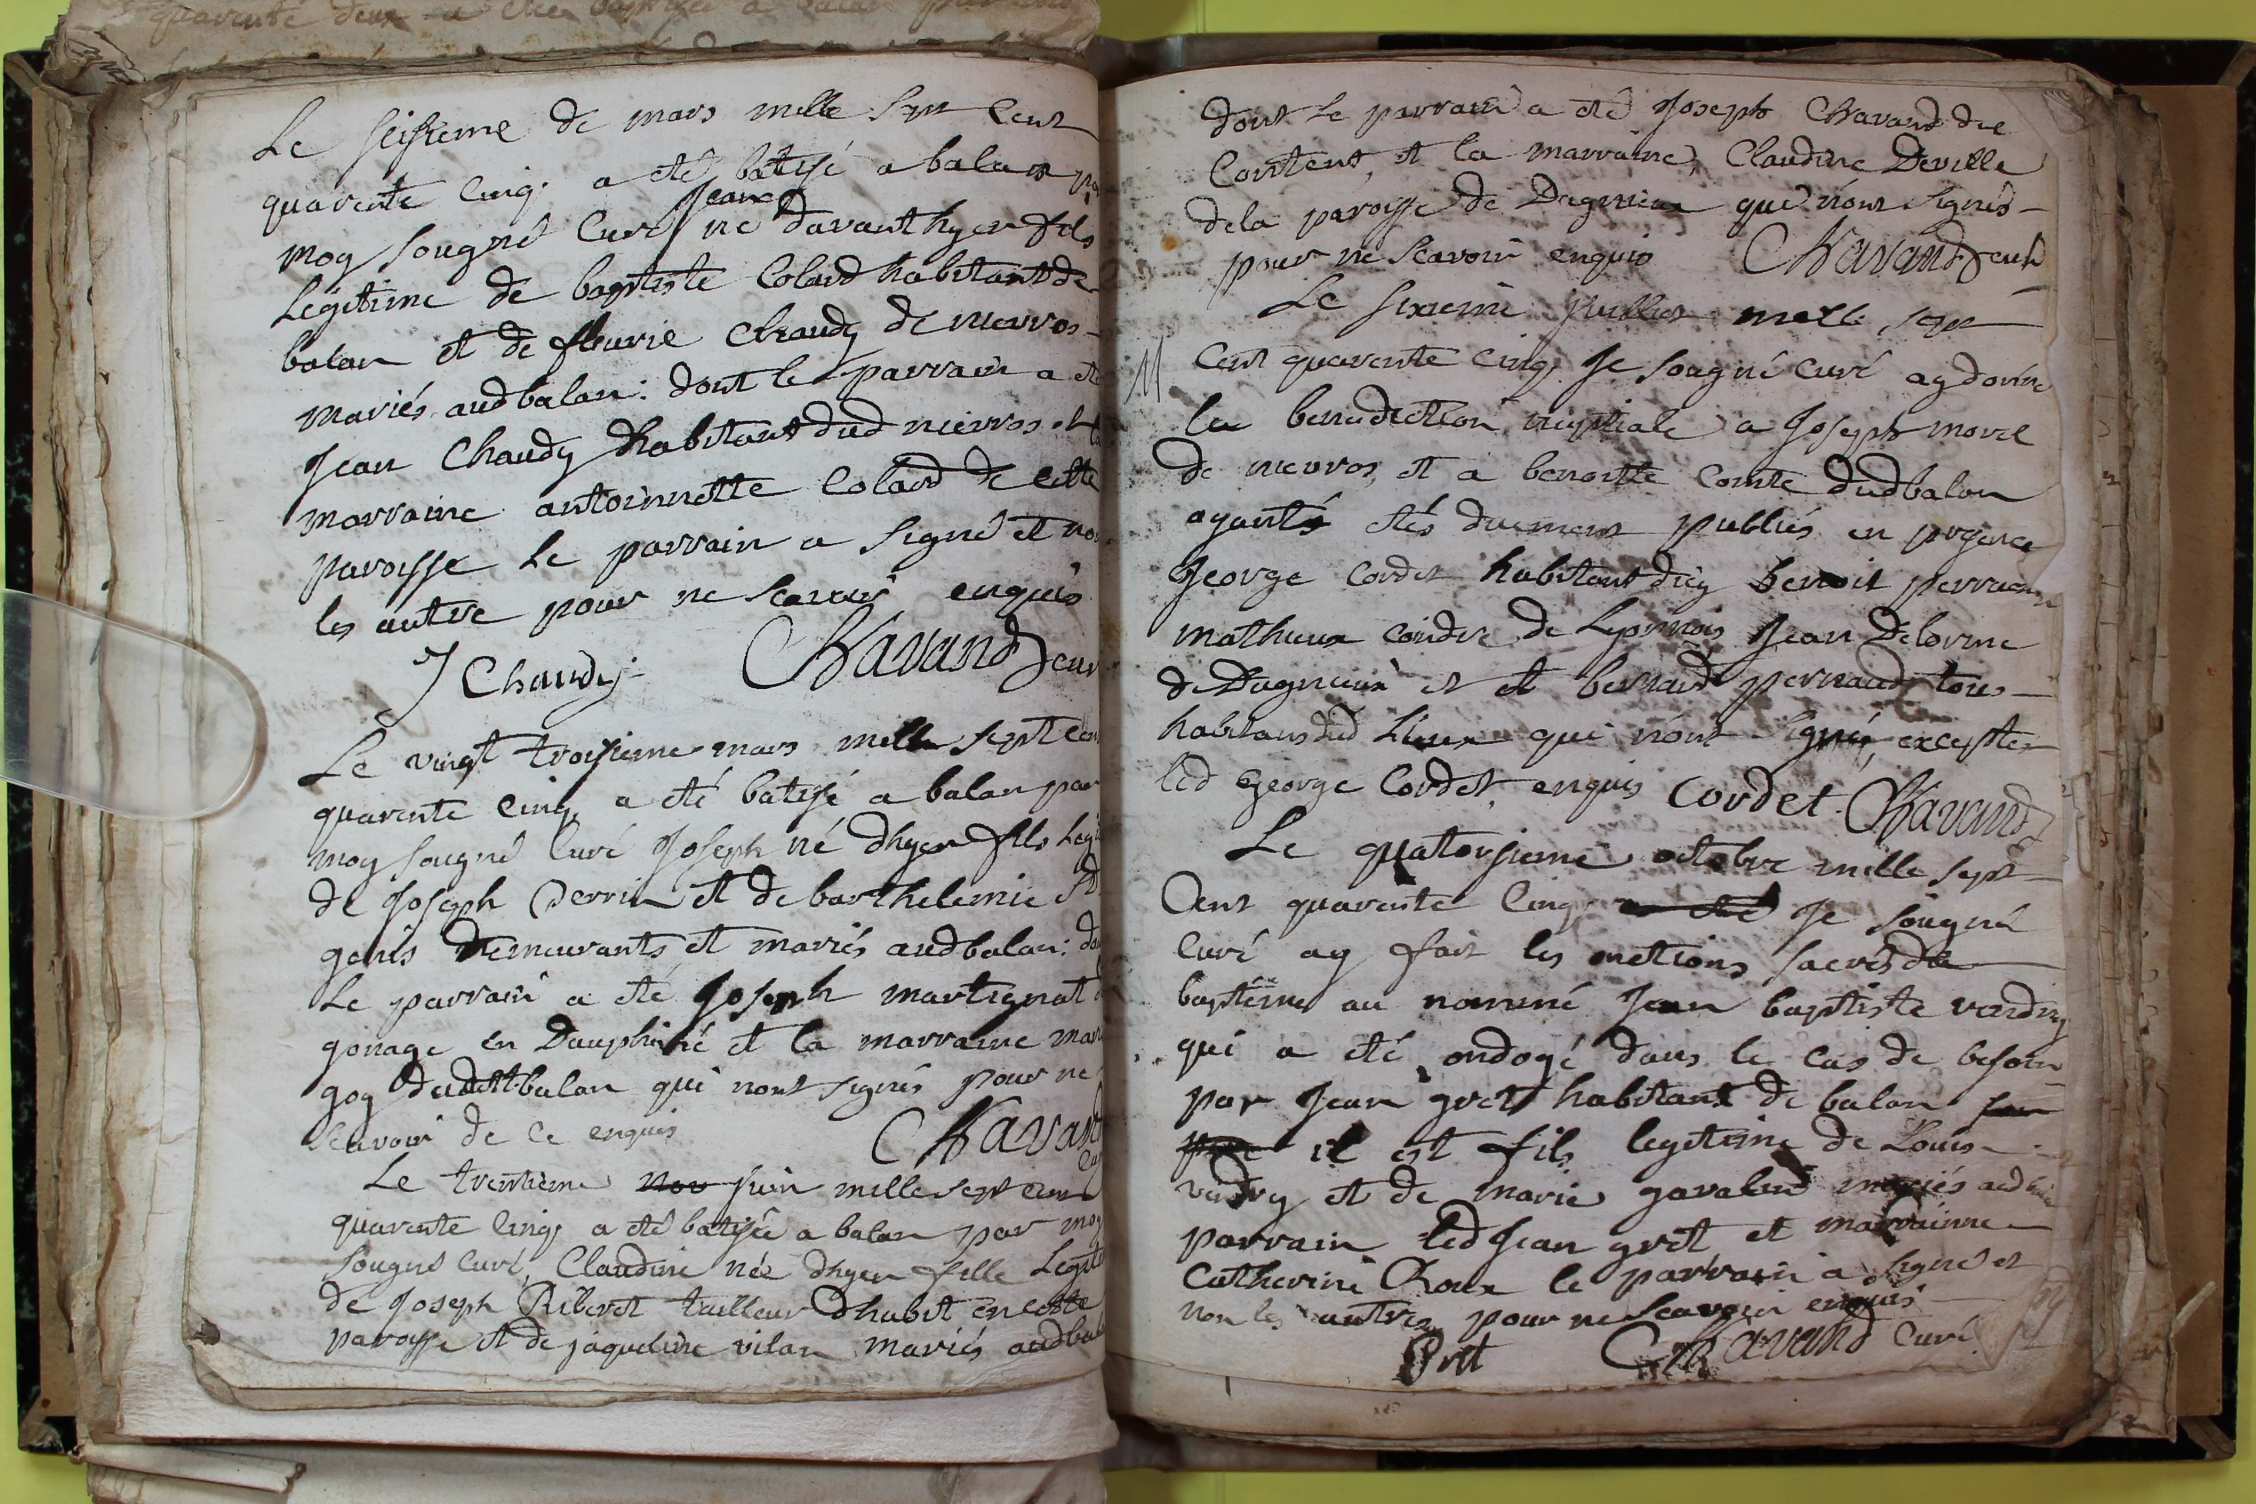 Le seisieme de mars mille sept cent
quarente cinq a eté batisé a balan par
moy sougné curé Jean né davanthyer fils
Legitime de baptiste Colard habitant de
balan et de fleurie Chaudy de nievros
mariés audbalan: dont le parrain a eté
Jean Chaudy dhabitant dud nievros et la
marraine antoinnette Colard de cette
paroisse Le parrain a signé et non
les autre pour ne scavoir enquis
J Chaudy Chavand cur
Le vingt troisieme mars mille sept cent
quarente cinq a eté batisé a balan par
moy sougné curé Joseph né dhyer fils Legi
de Joseph Perrin et de barthelemie St
genis demeurants et mariés audbalan: do
Le parrain a eté Joseph martignat
gonage en Dauphiné et la marraine mari
goy dudit balan qui nont signés pour ne
scavoir de ce enquis Chavand
Le trentieme nov juin mille sept cent
quarente cinq a eté batisée a balan par moy
sougné curé, Claudine née dhyer fille Legiti
de Joseph Riberet tailleur dhabit en cette
paroisse et de jaqueline vilan mariés audbal
dont Le parrain a eté Joseph Chavand du
Content, et la marraine, Claudine Deville
dela paroisse de Dagnieux qui n'ont signés
pour ne scavoir enquis Chavand curé
Le sixieme juillet mille sept
M cent quarente cinq Je sougné curé ay donné
la benediction nuptiale a Joseph morel
de nievros, et a benoitte Comte dudbalan
ayants etés duement publiés en presence
George Cordet habitant dicy benoit perruca
mathieux coindre de Lyonnois Jean Delorme
de Dagnieux et et bernard pernaud tous
habitans dud Lieux qui n'ont signés excepter
led George Cordet enquis Cordet Chavand
Le quatorsieme octobre mille sept
Cent quarente cinq a eté Je sougné
curé ay fait les onctions sacrés de
baptême au nommé Jean baptiste vardry
qui a eté ondoyé dans le cas de besoin
par Jean gret habitant de balan son
pere il est fils legitime de Louis
vardry et de marie gavaland mariés aud
parrain led Jean gret et marrainne
Catherine Roux le parrain a signé et
non les autres pour ne scavoir enquis
Gret Chavand curé